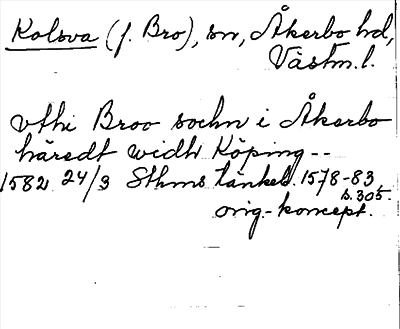 Kolsva (f. Bro), sn, Åkerbo hd,
Västm. l.
vthi Broo sochn i Åkerbo
häredt widh Köping --
1582 24/3 Sthms tänkeb. 1578-83,
s. 305.
orig.-koncept.